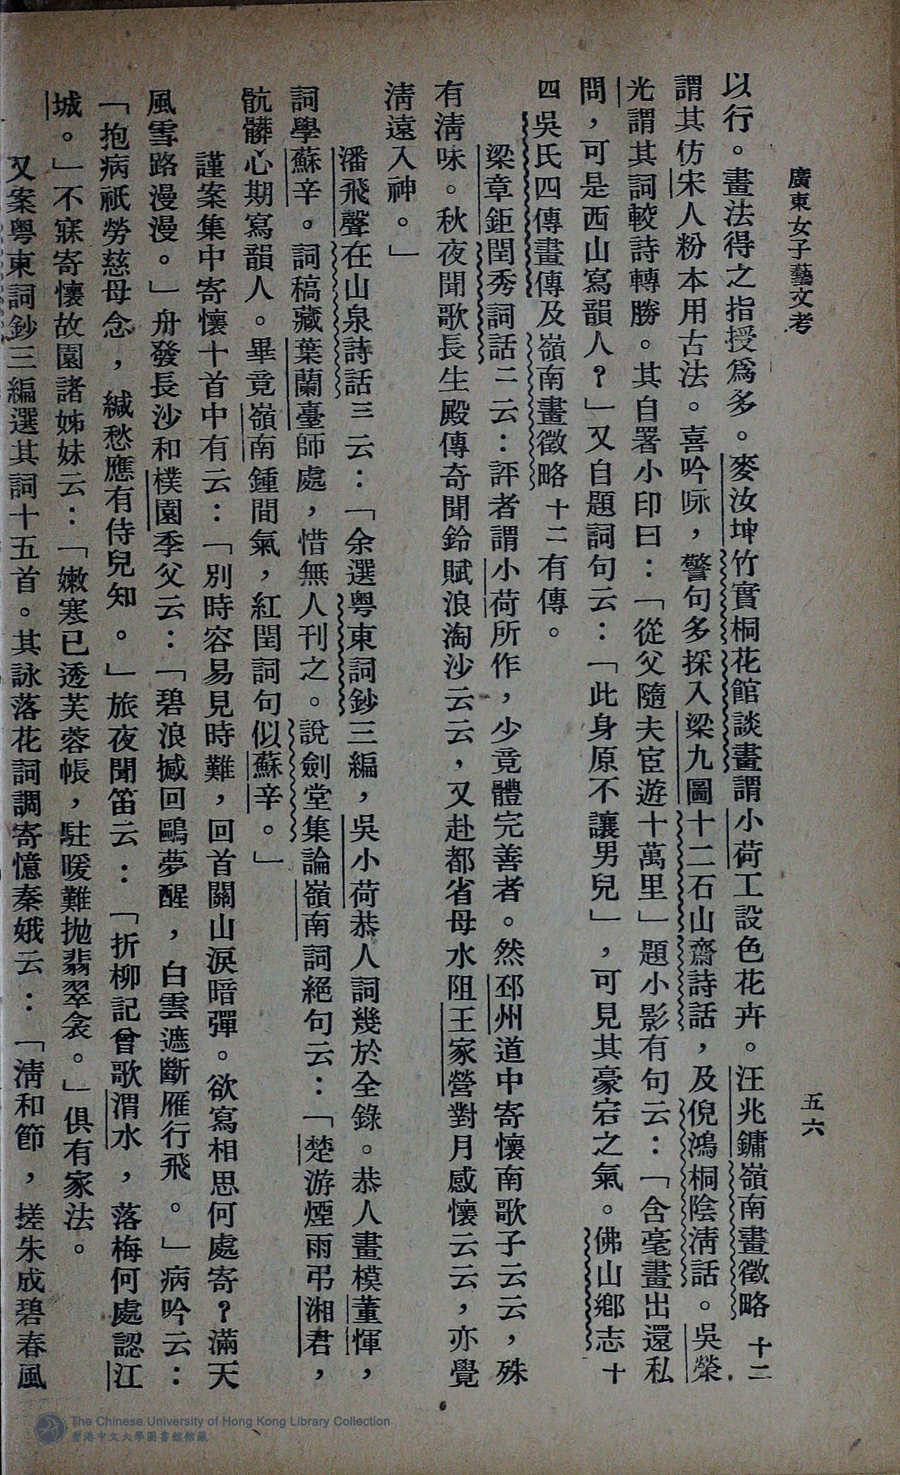 廣東女子藝文考
五六
以行。畫法得之指授爲多。麥汝坤竹實桐花館談畫謂小荷工設色花卉。汪兆鏞嶺南畫徵略十二
謂其仿宋人粉本用古法。喜吟咏，警句多採入梁九圖十二石山齋詩話，及倪鴻桐陰淸話。吳榮
光謂其詞較詩轉勝。其自署小印曰：「從父隨夫宦遊十萬里」題小影有句云：「含毫畫出還私
問，可是西山寫韻人？」又自題詞句云：「此身原不讓男兒」，可見其豪宕之氣。佛山鄉志十
四吳氏四傳畫傳及嶺南畫徵略十二有傳。
梁章鉅閨秀詞話二云：評者謂小荷所作，少竟體完善者。然邳州道中寄懷南歌子云云，殊
有淸味。秋夜聞歌長生殿傳奇聞鈴賦浪淘沙云云，又赴都省母水阻王家營對月感懷云云，亦覺
淸遠入神。」
潘飛聲在山泉詩話三云：「余選粵東詞鈔三編，吳小荷恭人詞幾於全錄。恭人畫模董惲，
詞學蘇辛。詞稿藏葉蘭臺師處，惜無人刊之。說劍堂集論嶺南詞絕句云：「楚游煙雨弔湘君，
骯髒心期寫韻人。畢竟嶺南鍾間氣，紅閨詞句似蘇辛。」
謹案集中寄懷十首中有云：「別時容易見時難，回首關山淚暗彈。欲寫相思何處寄？滿天
風雪路漫漫。」舟發長沙和樸園季父云：「碧浪撼回鷗夢醒，白雲遮斷雁行飛。」病吟云：
「抱病祇勞慈母念，緘愁應有侍兒知。」旅夜聞笛云：「折柳記曾歌渭水，落梅何處認江
城。」不寐寄懷故園諸姊妹云：「嫩寒已透芙蓉帳，駐暖難拋翡翠衾。」俱有家法。
又案粵東詞鈔三編選其詞十五首。其詠落花詞調寄憶秦娥云：「淸和節，搓朱成碧春風
The Chinese University of Hong Kong Library Collection
香港中文大學圖書館館藏